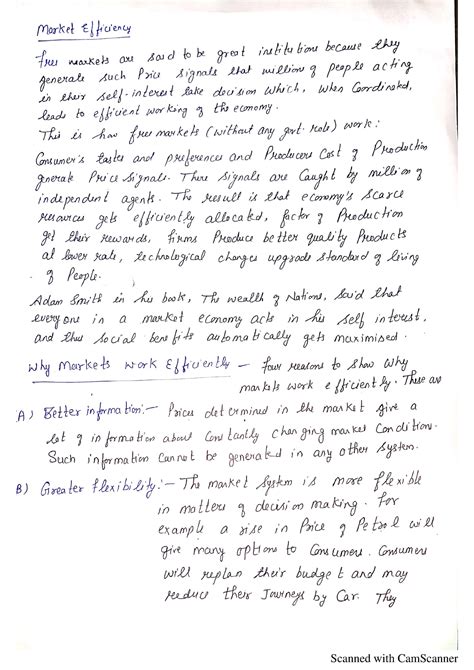 Market Efficiency
Free markets are said to be great institutions because they
generate such Price signals that millions of people acting
in their self-interest take decision which, when Coordinated,
leads to efficient working of the economy.
This is how free markets (without any govt. role) work:
Consumer's tastes and preferences and Producers Cost of Production
generate Price signals. There signals are Caught by million of
independent agents. The result is that economy's scarce
resources gets efficiently allocated, factor of Production
get their rewards, firms Produce better quality Products
at lower rate, technological changes upgrade standard of living
of People.
Adam Smith in his book, The wealth of Nations, Said that
everyone in a market economy acts in his self interest,
and thus social benefits automatically gets maximised.
Why Markets work Efficiently – four reasons to show why
markets work efficiently. These are
A) Better information:– Prices determined in the market give a
lot of information about Constantly changing market Conditions.
Such information Cannot be generated in any other system.
B) Greater flexibility:– The market system is more flexible
in matters of decision making. For
example a rise in Price of Petrol will
give many options to Consumers. Consumers
will replan their budget and may
reduce their Journeys by Car. They
Scanned with CamScanner